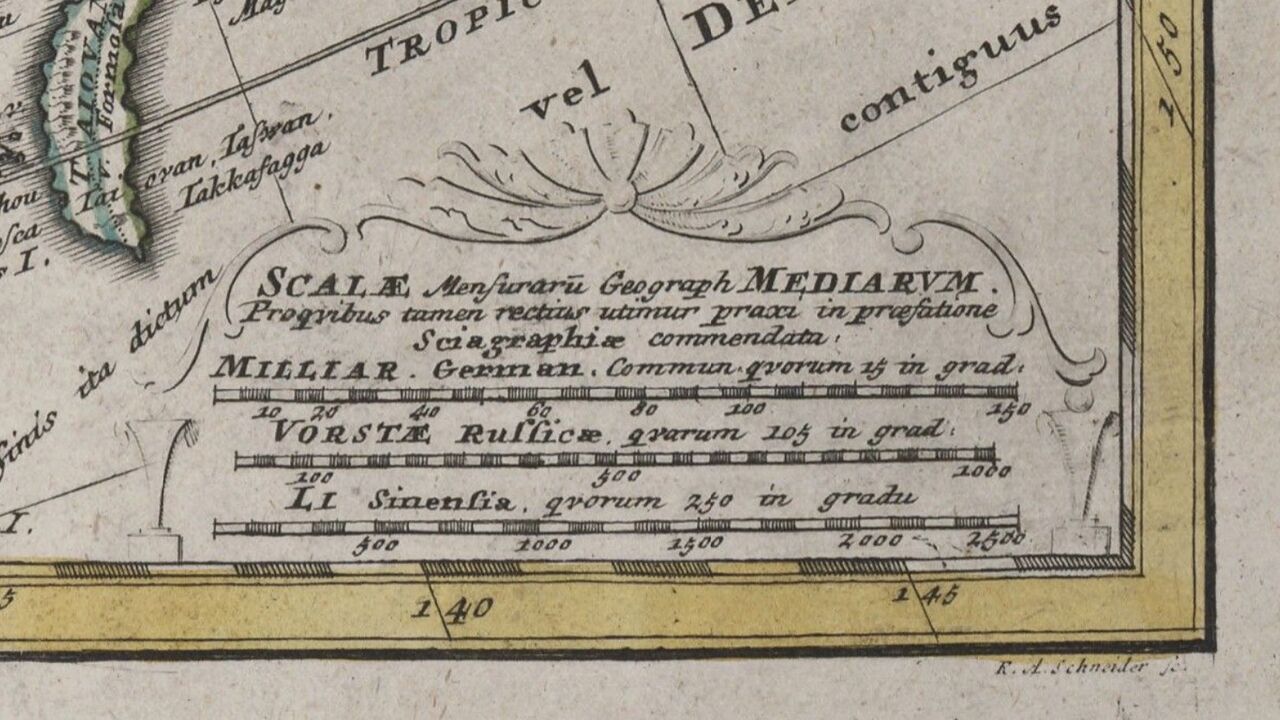 TROPIC
DE
vel
contiguus
1/50
TAIOVAN
Formosa
Tai
ovan, Taſwan.
Takkaſagga
hou
eſca
I.
Sinis ita dictum
SCALÆ Menſurarū Geograph MEDIARVM.
Proqvibus tamen rectius utimur praxi in præfatione
Sciagraphiæ commendata:
MILLIAR. German. Commun. qvorum 15 in grad:
10 20 40 60 80 100 150
VORSTÆ Ruſſicæ, qvarum 105 in grad:
100 500 1000
LI Sinenſia, qvorum 250 in gradu
500 1000 1500 2000 2500
I.
5 140 145
R. A. Schneider ſc.